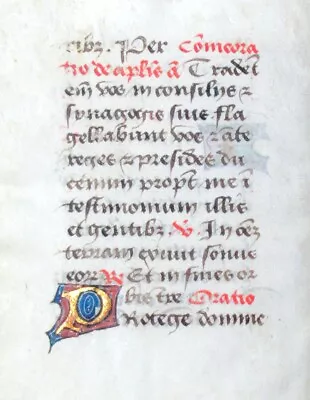 cibꝫ. Per Cōmeora
tio de aplīs ā Tradēt
em̄ vos in consiliys ⁊
synagogis suis fla
gellabunt vos ⁊ āte
reges ⁊ presides du
cemini propt̄ me ī
testimonium illis
et gentibꝫ ℣. In oēꝫ
terram exivit sonus
eoꝝ ℟ Et in fines or
bis tr̄e Oratio
Protege domine